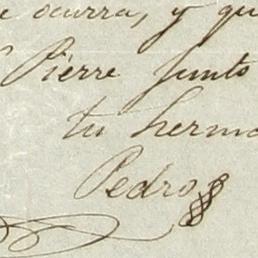 ocurra, y qu
Pierre junto
tu herma
Pedro